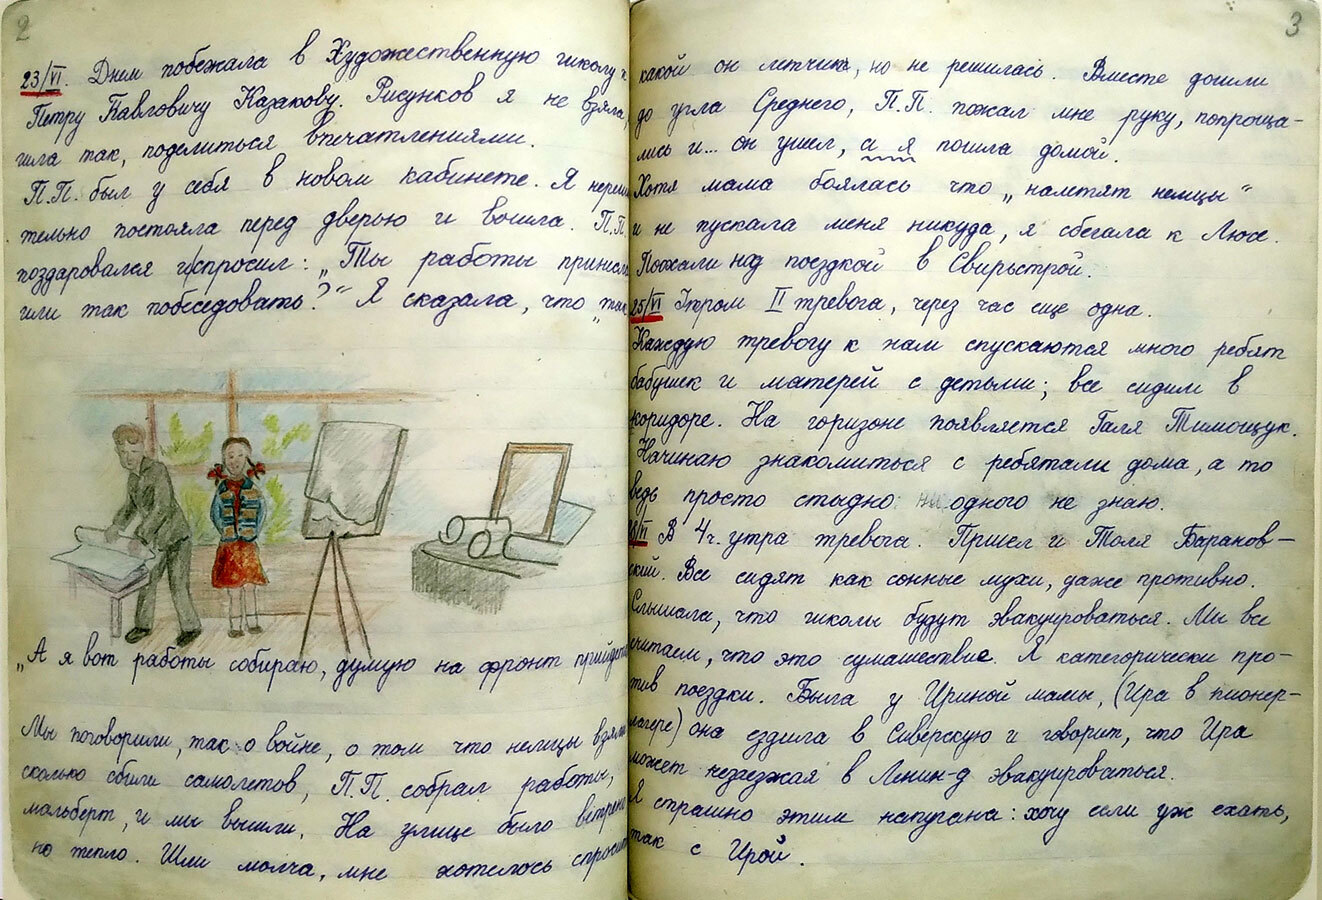 2
23/VI. Днем побежала в Художественную школу к
Петру Павловичу Казакову. Рисунков я не взяла,
шла так, поделиться впечатлениями.
П.П. был у себя в новом кабинете. Я нереши
тельно постояла перед дверью и вошла. П.П.
поздаровался и спросил: „Ты работы принесла
или так побеседовать?“ Я сказала, что „так
„А я вот работы собираю, думаю на фронт прийдется
Мы поговорили, так о войне, о том что немцы взяли
сколько сбили самолетов, П.П. собрал работы,
мольберт, и мы вышли. На улице было ветрено
но тепло. Шли молча, мне хотелось спросить
3
какой он летчик, но не решилась. Вместе дошли
до угла Среднего, П.П. пожал мне руку, попроща-
лись и... он ушел, а я пошла домой.
Хотя мама боялась что „налетят немцы“
и не пускала меня никуда, я сбегала к Люсе.
Поохали над поездкой в Свирьстрой.
25/VI Утром II тревога, через час еще одна.
Каждую тревогу к нам спускаются много ребят
бабушек и матерей с детьми; все сидим в
коридоре. На горизоне появляется Галя Тимощук.
Начинаю знакомиться с ребятами дома, а то
ведь просто стыдно ни одного не знаю.
/VI В 4 ч. утра тревога. Пришел и Толя Баранов-
ский. Все сидят как сонные мухи, даже противно.
Слышала, что школы будут эвакуироваться. Мы все
считаем, что это сумашествие. Я категорически про-
тив поездки. Была у Ириной мамы, (Ира в пионер-
лагере) она ездила в Сиверскую и говорит, что Ира
может незаезжая в Ленин-д эвакуироваться.
Я страшно этим напугана: хочу если уж ехать,
так с Ирой.